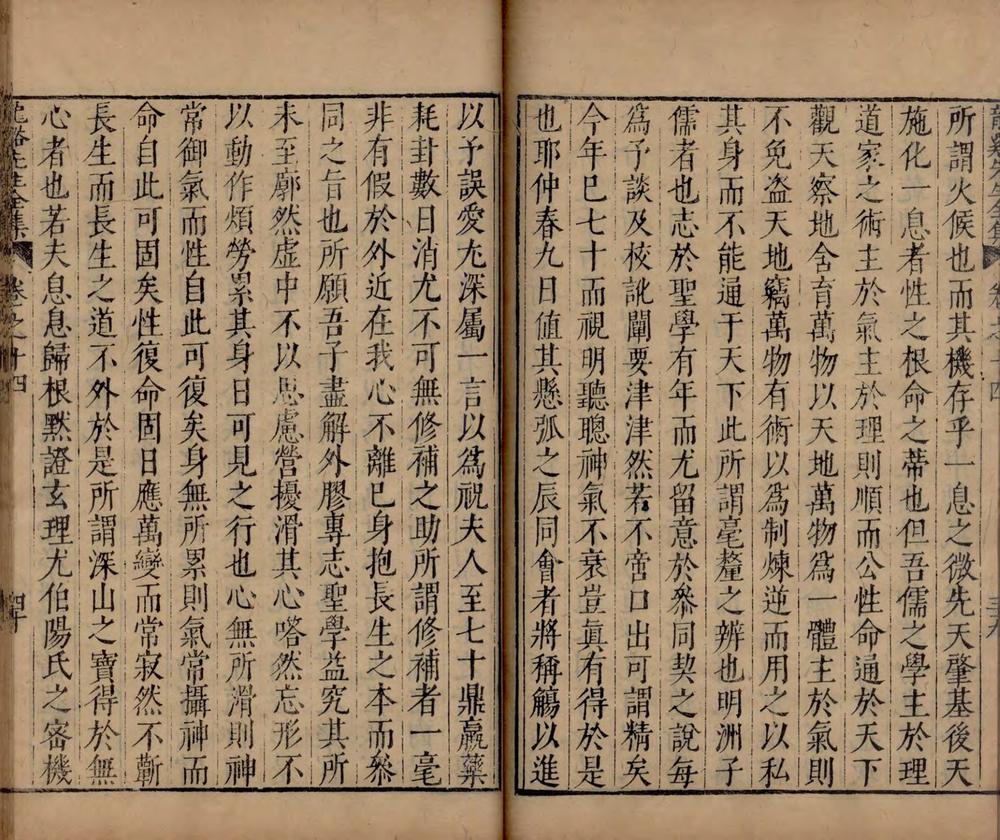 所謂火候也而其機存乎一息之微先天肇基後天
施化一息者性之根命之蒂也但吾儒之學主於理
道家之術主於氣主於理則順而公性命通於天下
觀天察地含育萬物以天地萬物為一體主於氣則
不免盜天地竊萬物有術以為制煉逆而用之以私
其身而不能通于天下此所謂毫釐之辨也明洲子
儒者也志於聖學有年而尤留意於叅同契之說每
為予談及校訛闡要津津然若不啻口出可謂精矣
今年巳七十而視明聽聰神氣不衰豈眞有得於是
也耶仲春九日值其懸弧之辰同會者將稱觴以進
以予誤愛尤深屬一言以為祝夫人至七十鼎羸藥
耗封數日消尤不可無修補之助所謂修補者一毫
非有假於外近在我心不離巳身抱長生之本而叅
同之旨也所願吾子盡解外膠專志聖學益究其所
未至廓然虛中不以思慮營擾滑其心嗒然忘形不
以動作煩勞累其身日可見之行也心無所滑則神
常御氣而性自此可復矣身無所累則氣常攝神而
命自此可固矣性復命固日應萬變而常寂然不蘄
長生而長生之道不外於是所謂深山之寶得於無
心者也若夫息息歸根默證玄理尤伯陽氏之密機
龍谿先生全集 卷之十四 四十